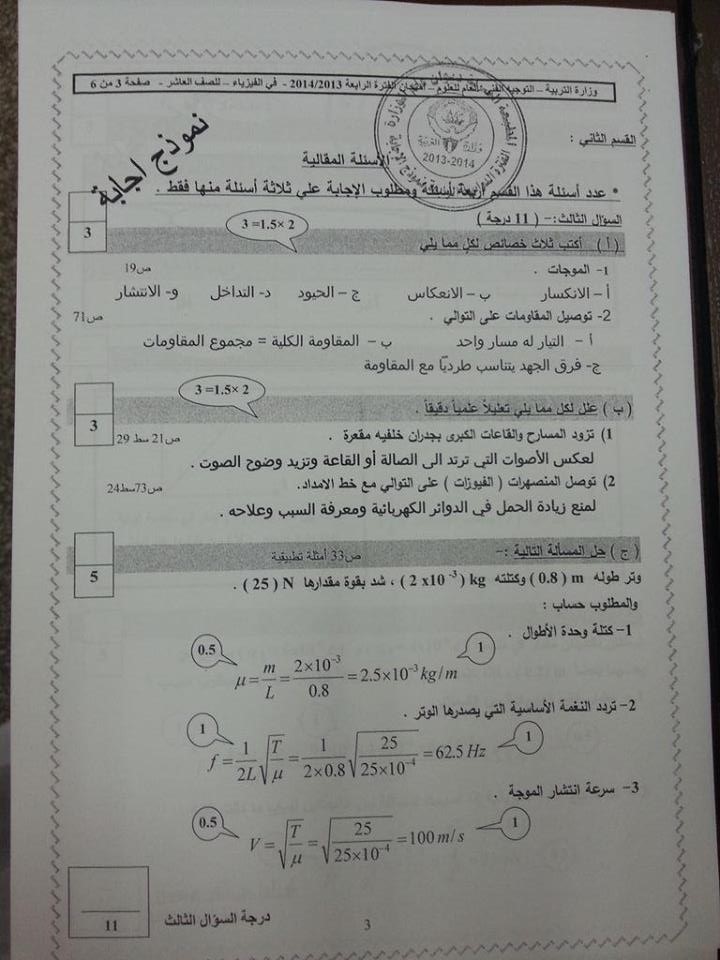 وزارة التربية – التوجيه الفني العام للعلوم – امتحان الفترة الرابعة 2014/2013 - في الفيزياء – للصف العاشر - صفحة 3 من 6
نموذج اجابة
2013-2014
القسم الثاني :
الأسئلة المقالية
* عدد أسئلة هذا القسم أربعة أسئلة ومطلوب الإجابة علي ثلاثة أسئلة منها فقط .
السؤال الثالث:– ( 11 درجة )
3 =1.5× 2
3
( أ ) أكتب ثلاث خصائص لكل مما يلي
1- الموجات . ص19
أ – الانكسار ب – الانعكاس ج – الحيود د- التداخل و- الانتشار
2- توصيل المقاومات على التوالي . ص71
أ – التيار له مسار واحد ب – المقاومة الكلية = مجموع المقاومات
ج- فرق الجهد يتناسب طرديًا مع المقاومة
3 =1.5× 2
3
( ب ) علل لكل مما يلي تعليلاً علمياً دقيقاً .
1) تزود المسارح والقاعات الكبرى بجدران خلفيه مقعرة . ص21 سط 29
لعكس الأصوات التي ترتد الى الصالة أو القاعة وتزيد وضوح الصوت .
2) توصل المنصهرات ( الفيوزات ) على التوالي مع خط الامداد. ص73سط24
لمنع زيادة الحمل في الدوائر الكهربائية ومعرفة السبب وعلاجه .
5
( ج ) حل المسألة التالية :- ص33 أمثلة تطبيقية
وتر طوله m ( 0.8 ) وكتلته kg ( 2 x10 ⁻³ ) ، شد بقوة مقدارها N ( 25 ) .
والمطلوب حساب :
1- كتلة وحدة الأطوال .
0.5 1
μ = m/L = 2×10⁻³/0.8 = 2.5×10⁻³ kg/m
2- تردد النغمة الأساسية التي يصدرها الوتر .
1 1
f = 1/2L √(T/μ) = 1/(2×0.8) √(25/(25×10⁻⁴)) = 62.5 Hz
3- سرعة انتشار الموجة .
0.5 1
V = √(T/μ) = √(25/(25×10⁻⁴)) = 100 m/s
11
درجة السؤال الثالث
3